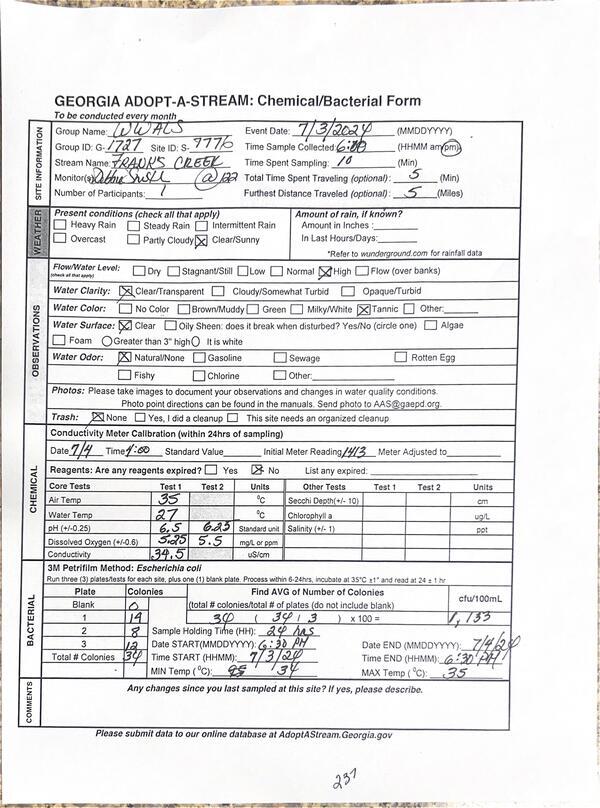 GEORGIA ADOPT-A-STREAM: Chemical/Bacterial Form
To be conducted every month
SITE INFORMATION
Group Name: WWALS Event Date: 7/3/2024 (MMDDYYYY)
Group ID: G-1727 Site ID: S-7776 Time Sample Collected: 6:00 (HHMM am/pm)
Stream Name: FRANKS CREEK Time Spent Sampling: 10 (Min)
Monitor(s) Debbie @ 122 Total Time Spent Traveling (optional): 5 (Min)
Number of Participants: 1 Furthest Distance Traveled (optional): 5 (Miles)
WEATHER
Present conditions (check all that apply) Amount of rain, if known?
Heavy Rain Steady Rain Intermittent Rain Amount in Inches :
Overcast Partly Cloudy Clear/Sunny In Last Hours/Days:
*Refer to wunderground.com for rainfall data
OBSERVATIONS
Flow/Water Level: Dry Stagnant/Still Low Normal High Flow (over banks)
(check all that apply)
Water Clarity: Clear/Transparent Cloudy/Somewhat Turbid Opaque/Turbid
Water Color: No Color Brown/Muddy Green Milky/White Tannic Other:
Water Surface: Clear Oily Sheen: does it break when disturbed? Yes/No (circle one) Algae
Foam Greater than 3" high It is white
Water Odor: Natural/None Gasoline Sewage Rotten Egg
Fishy Chlorine Other:
Photos: Please take images to document your observations and changes in water quality conditions.
Photo point directions can be found in the manuals. Send photo to AAS@gaepd.org.
Trash: None Yes, I did a cleanup This site needs an organized cleanup
CHEMICAL
Conductivity Meter Calibration (within 24hrs of sampling)
Date 7/4 Time 4:00 Standard Value Initial Meter Reading 1413 Meter Adjusted to
Reagents: Are any reagents expired? Yes No List any expired:
Core Tests Test 1 Test 2 Units Other Tests Test 1 Test 2 Units
Air Temp 35 °C Secchi Depth(+/- 10) cm
Water Temp 27 °C Chlorophyll a ug/L
pH (+/-0.25) 6.5 6.25 Standard unit Salinity (+/- 1) ppt
Dissolved Oxygen (+/-0.6) 5.25 5.5 mg/L or ppm
Conductivity 34.5 uS/cm
BACTERIAL
3M Petrifilm Method: Escherichia coli
Run three (3) plates/tests for each site, plus one (1) blank plate. Process within 6-24hrs, incubate at 35°C ±1° and read at 24 ± 1 hr
Plate Colonies Find AVG of Number of Colonies cfu/100mL
Blank 0 (total # colonies/total # of plates (do not include blank)
1 14 34 ( 34 / 3 ) x 100 = 1,133
2 8 Sample Holding Time (HH): 24 hrs
3 12 Date START(MMDDYYYY): 6:30 PM Date END (MMDDYYYY): 7/4/24
Total # Colonies 34 Time START (HHMM): 7/3/24 Time END (HHMM): 6:30 PM
MIN Temp (°C): 34 MAX Temp (°C): 35
COMMENTS
Any changes since you last sampled at this site? If yes, please describe.
Please submit data to our online database at AdoptAStream.Georgia.gov
237